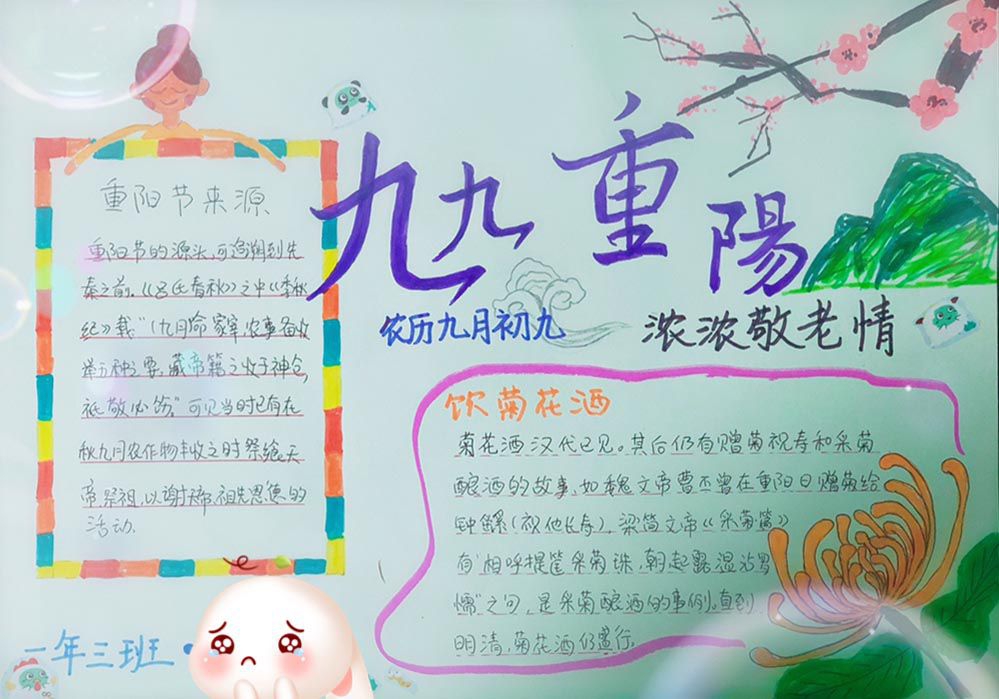 九九重陽
农历九月初九
浓浓敬老情
重阳节来源
重阳节的源头,可追溯到先
秦之前。《吕氏春秋》之中《季秋
纪》载"(九月)命家宰,农事备收
举五种之要。藏帝籍之收于神仓,
祗敬必饬。"可见当时已有在
秋九月农作物丰收之时祭飨天
帝,祭祖,以谢天帝、祖先恩德的
活动.
饮菊花酒
菊花酒汉代已见。其后仍有赠菊祝寿和采菊
酿酒的故事,如魏文帝曹丕曾在重阳日赠菊给
钟繇(祝他长寿),梁简文帝《采菊篇》
有"相呼提筐采菊珠,朝起露湿沾罗
懦"之句,是采菊酿酒的事例。直到
明清,菊花酒仍盛行。
一年三班